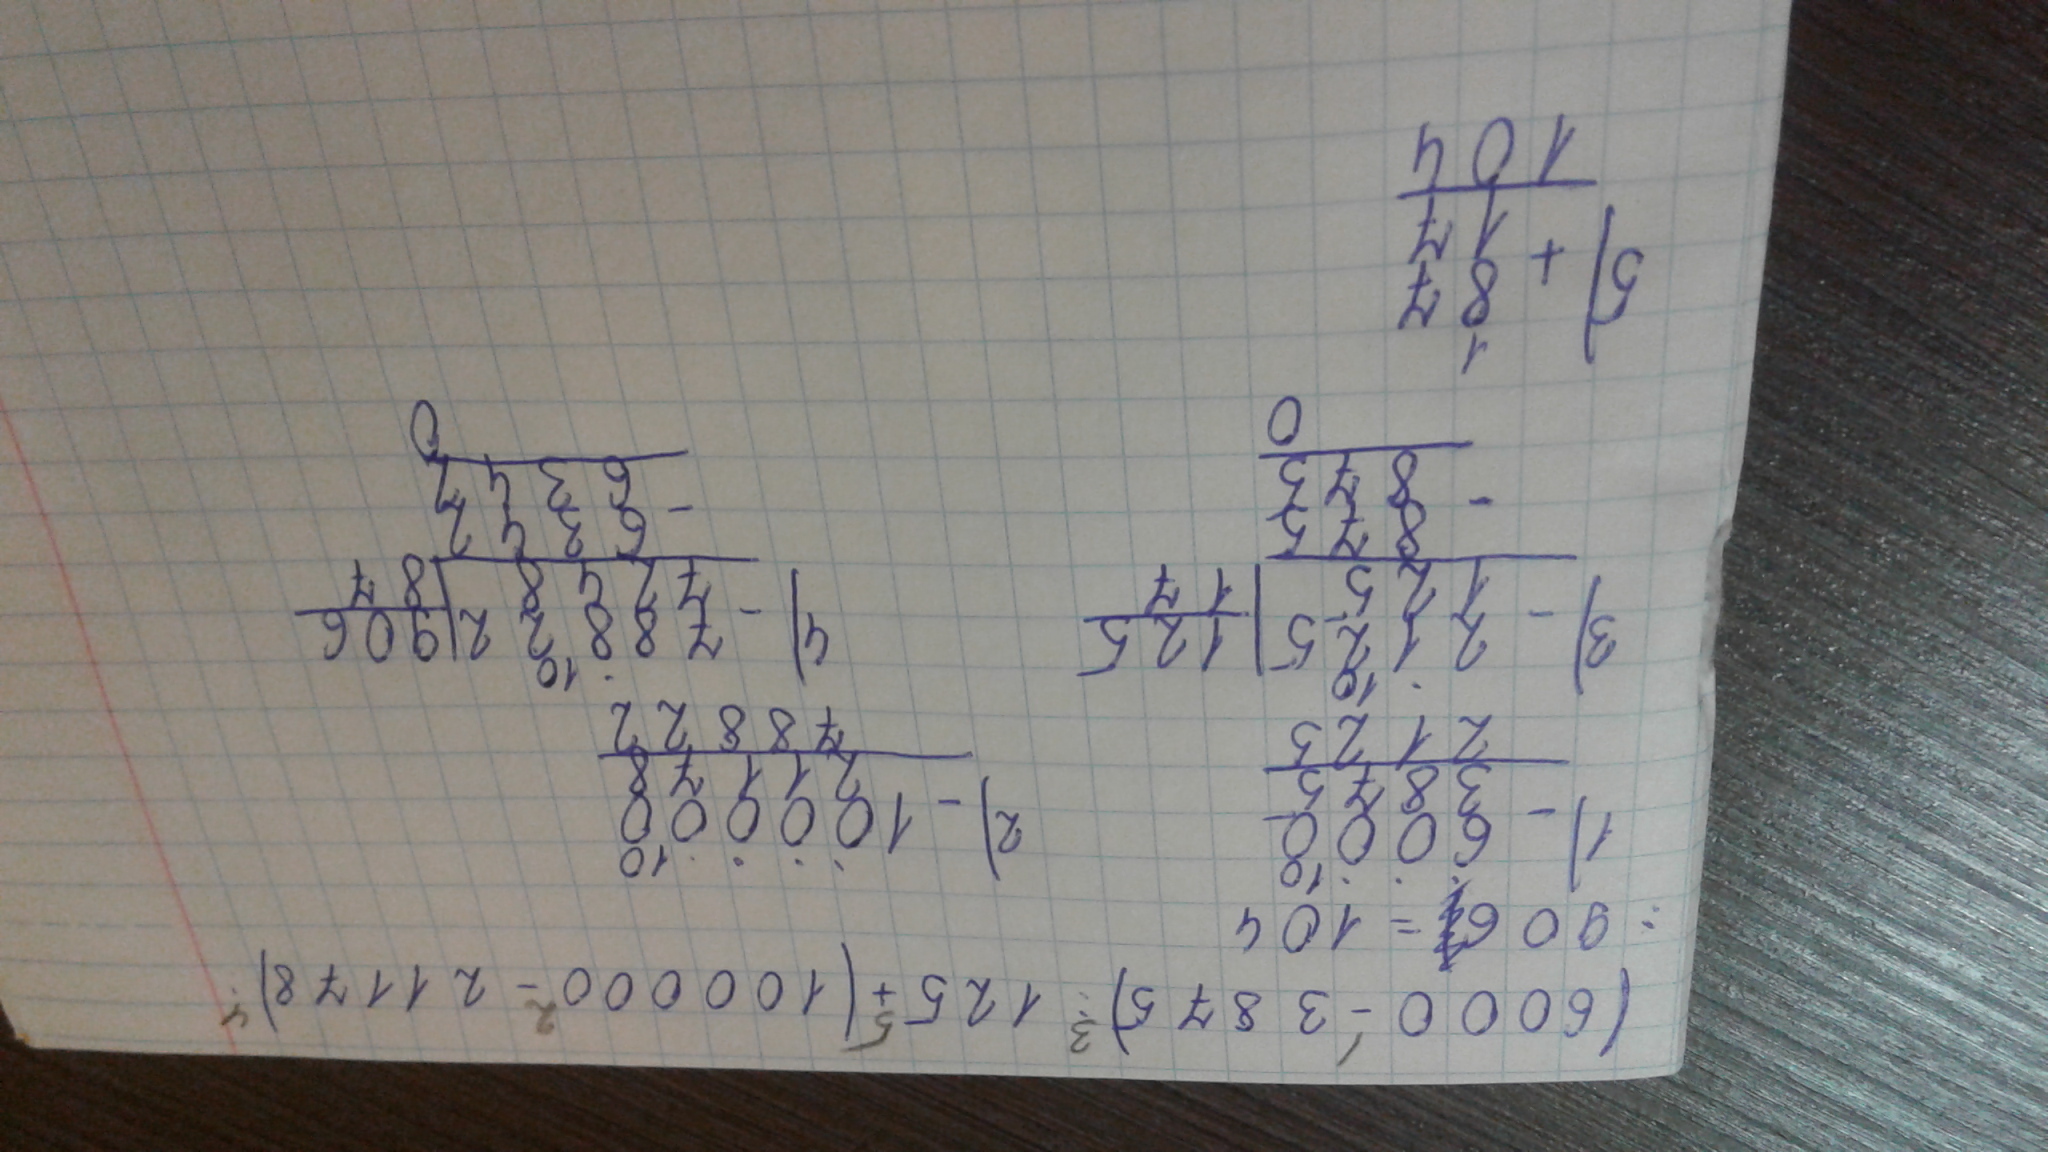 (6000-3875):125+(100000-21178):
:906=104
1) - 6000
3875
2125
2) - 100000
21178
78822
3) - 2125 | 125
125 | 17
- 875
875
0
4) - 78822 | 906
7248 | 87
- 6342
6342
0
5) + 87
17
104